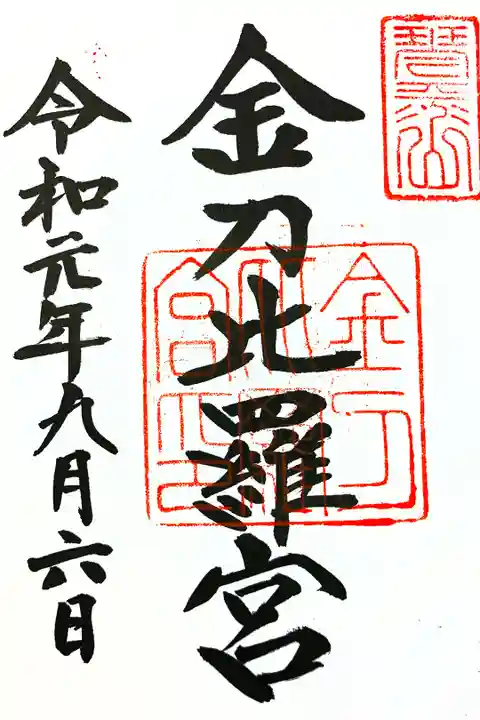 琴平山
金刀比羅宮
金刀
比羅
宮之印
令和元年九月六日